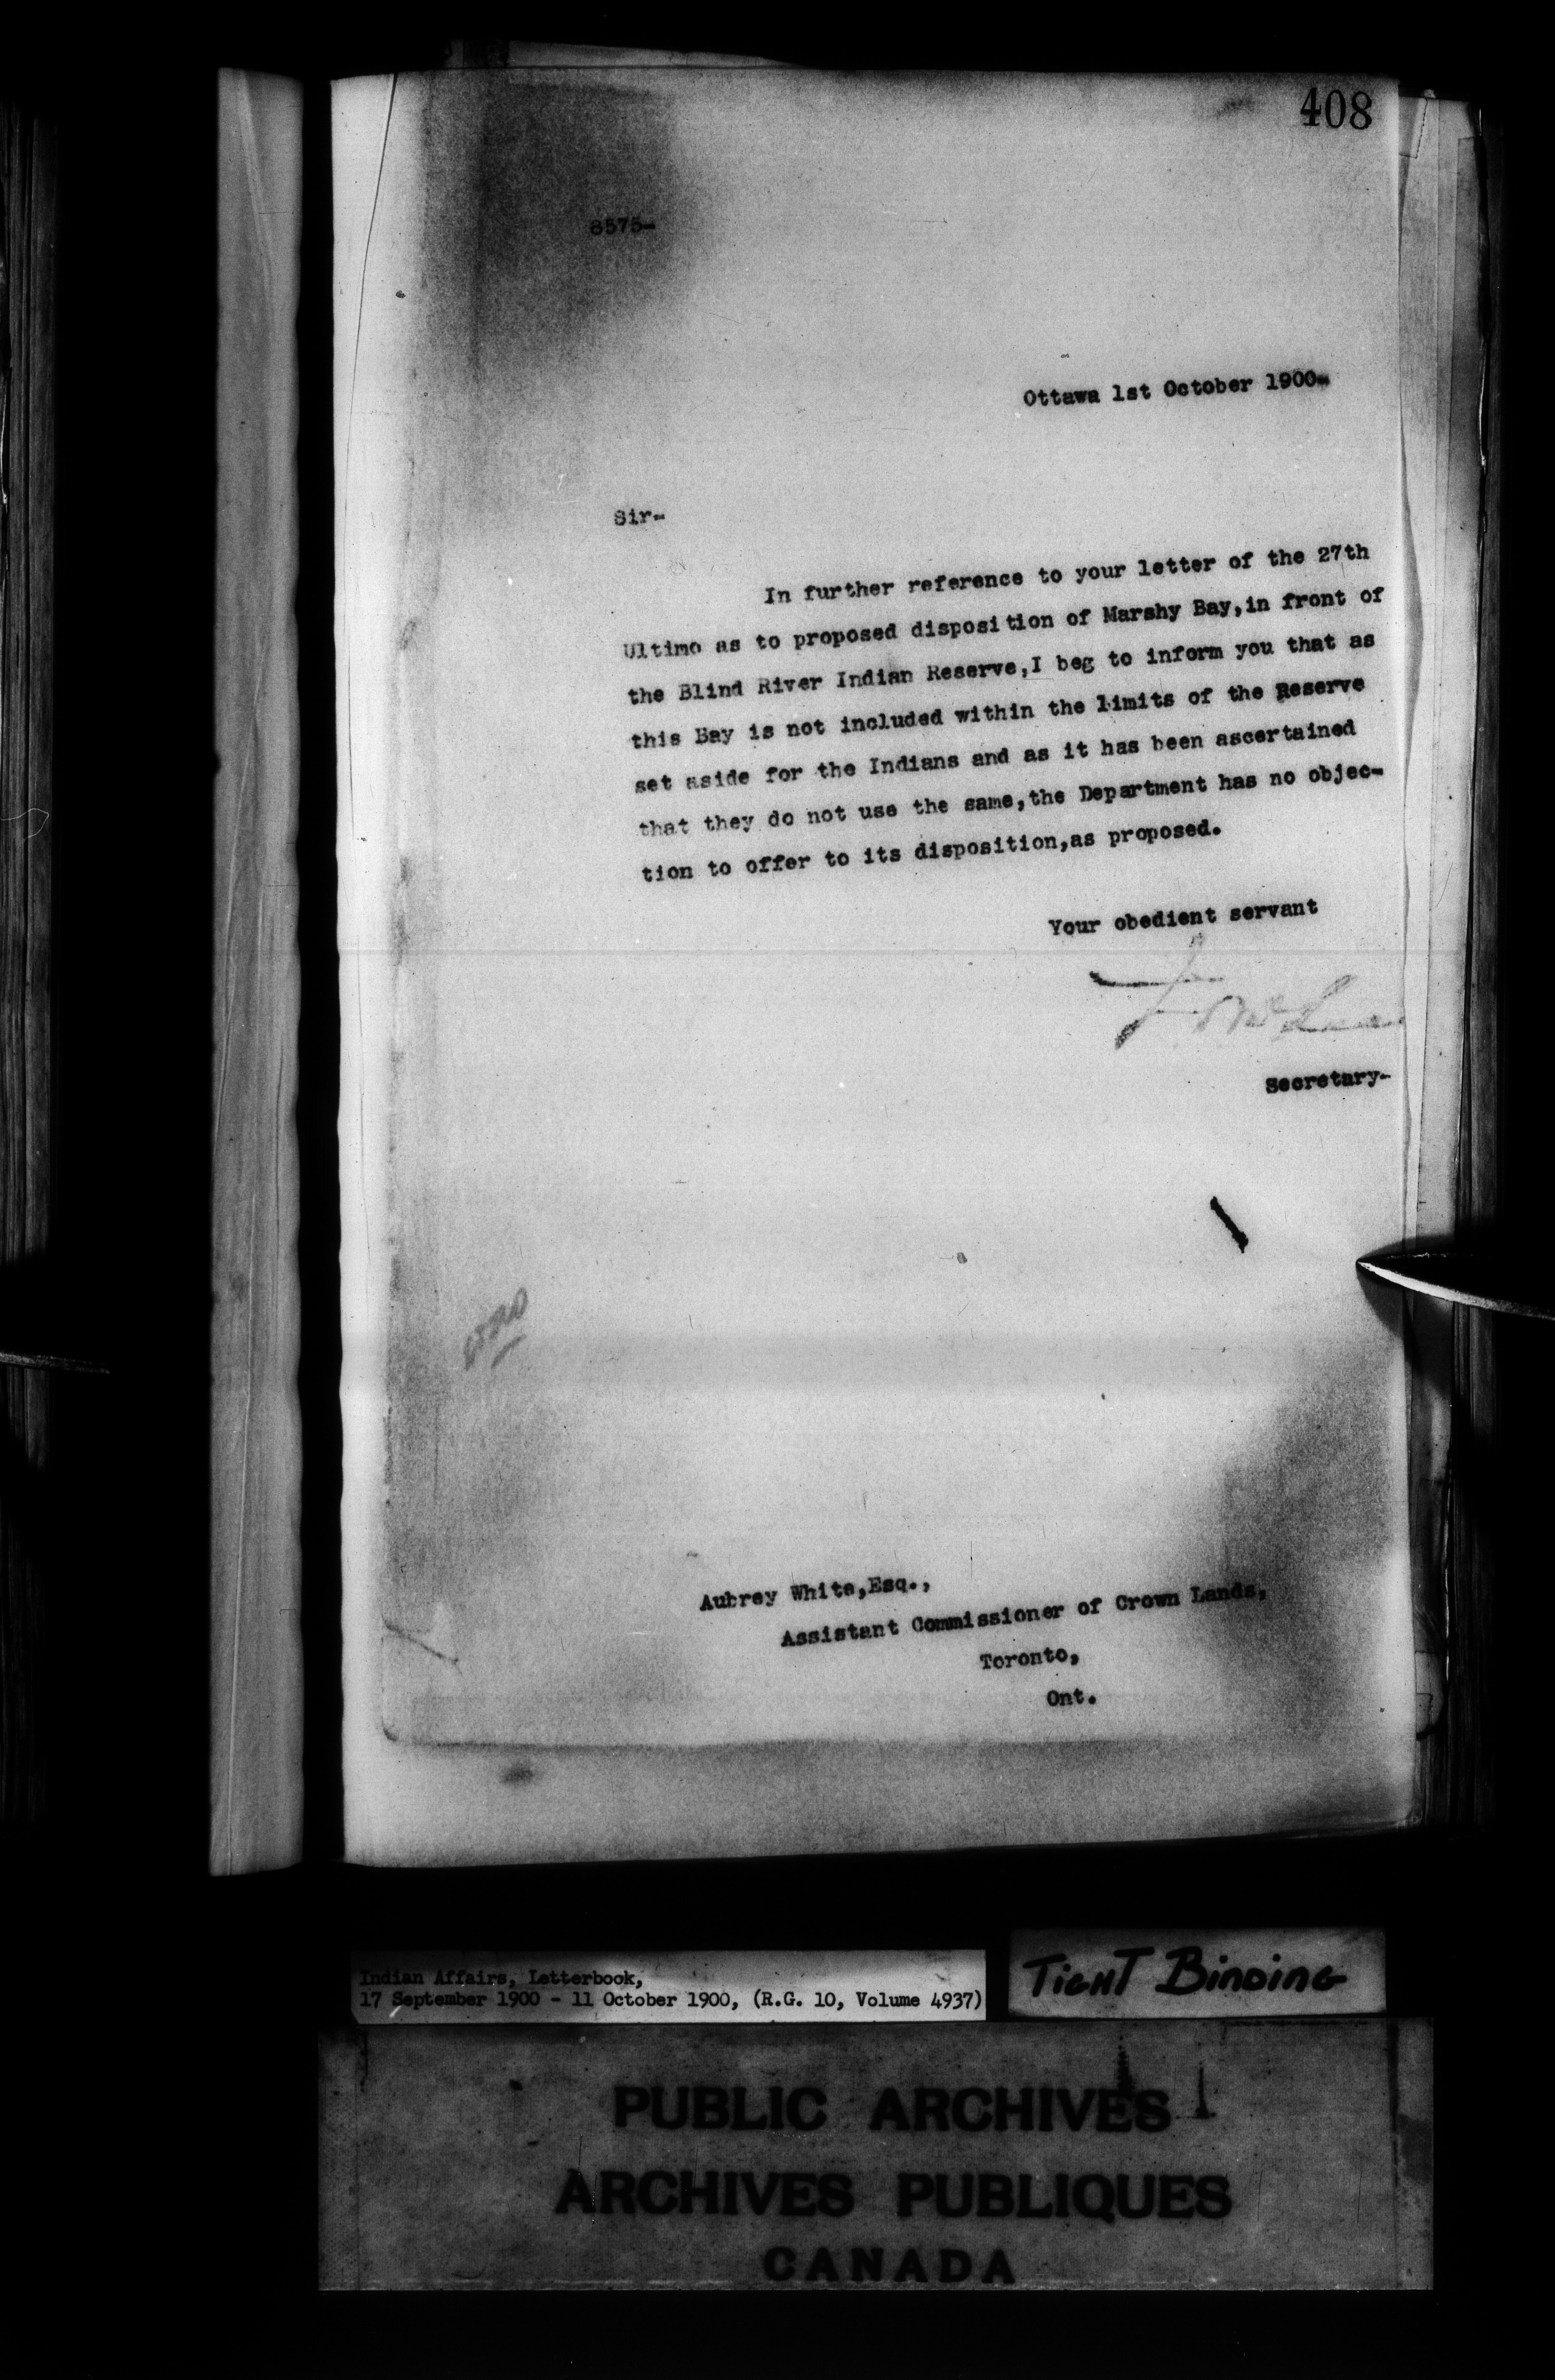 408
8575-
Ottawa 1st October 1900-
Sir-
In further reference to your letter of the 27th
Ultimo as to proposed disposition of Marshy Bay,in front of
the Blind River Indian Reserve,I beg to inform you that as
this Bay is not included within the limits of the Reserve
set aside for the Indians and as it has been ascertained
that they do not use the same,the Department has no objec-
tion to offer to its disposition,as proposed.
Your obedient servant
Secretary-
Aubrey White,Esq.,
Assistant Commissioner of Crown Lands,
Toronto,
Ont.
Indian Affairs, Letterbook,
17 September 1900 - 11 October 1900, (R.G. 10, Volume 4937)
TIGHT BINDING
PUBLIC ARCHIVES
ARCHIVES PUBLIQUES
CANADA